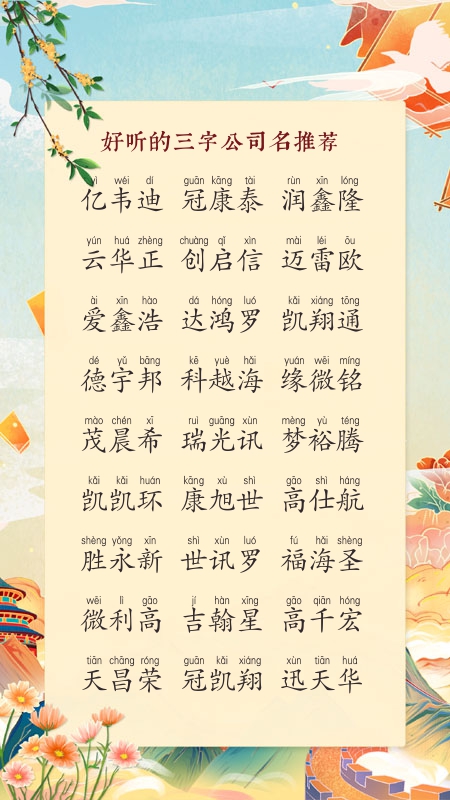 好听的三字公司名推荐
yì wéi dí guān kāng tài rùn xīn lóng
亿韦迪 冠康泰 润鑫隆
yún huá zhèng chuàng qǐ xìn mài léi ōu
云华正 创启信 迈雷欧
ài xīn hào dá hóng luó kǎi xiáng tōng
爱鑫浩 达鸿罗 凯翔通
dé yǔ bāng kē yuè hǎi yuán wēi míng
德宇邦 科越海 缘微铭
mào chén xī ruì guāng xùn mèng yù téng
茂晨希 瑞光讯 梦裕腾
kǎi kǎi huán kāng xù shì gāo shì háng
凯凯环 康旭世 高仕航
shèng yǒng xīn shì xùn luó fú hǎi shèng
胜永新 世讯罗 福海圣
wēi lì gāo jí hàn xīng gāo qiān hóng
微利高 吉翰星 高千宏
tiān chāng róng guān kǎi xiáng xùn tiān huá
天昌荣 冠凯翔 迅天华